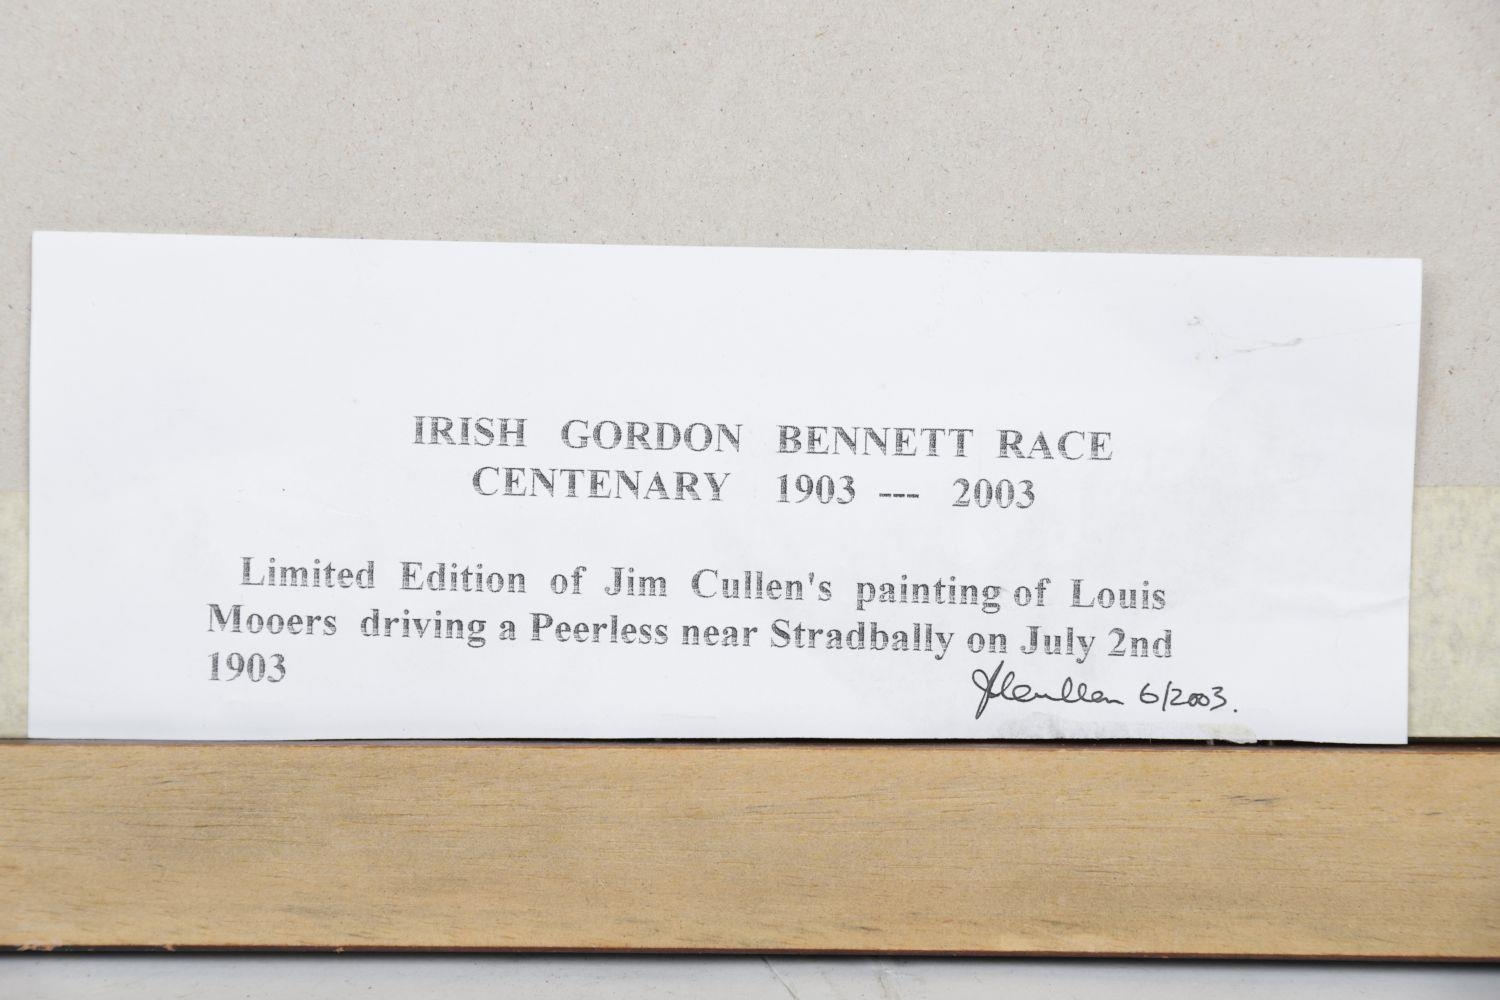 IRISH GORDON BENNETT RACE
CENTENARY 1903 — 2003
Limited Edition of Jim Cullen's painting of Louis
Mooers driving a Peerless near Stradbally on July 2nd
1903
JCullen 6/2003.